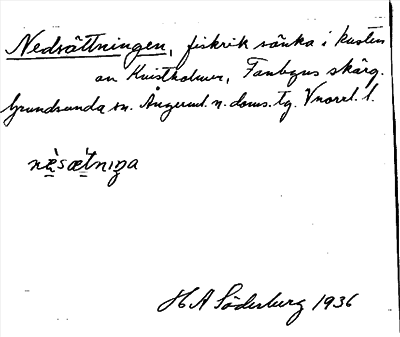 Nedsättningen, fiskrik sänka i kusten
av Kvistholmen, Fanbyns skärg.
Grundsunda sn. Ångerml. n. doms. tg. Vnorrl. l.
H A Söderberg 1936